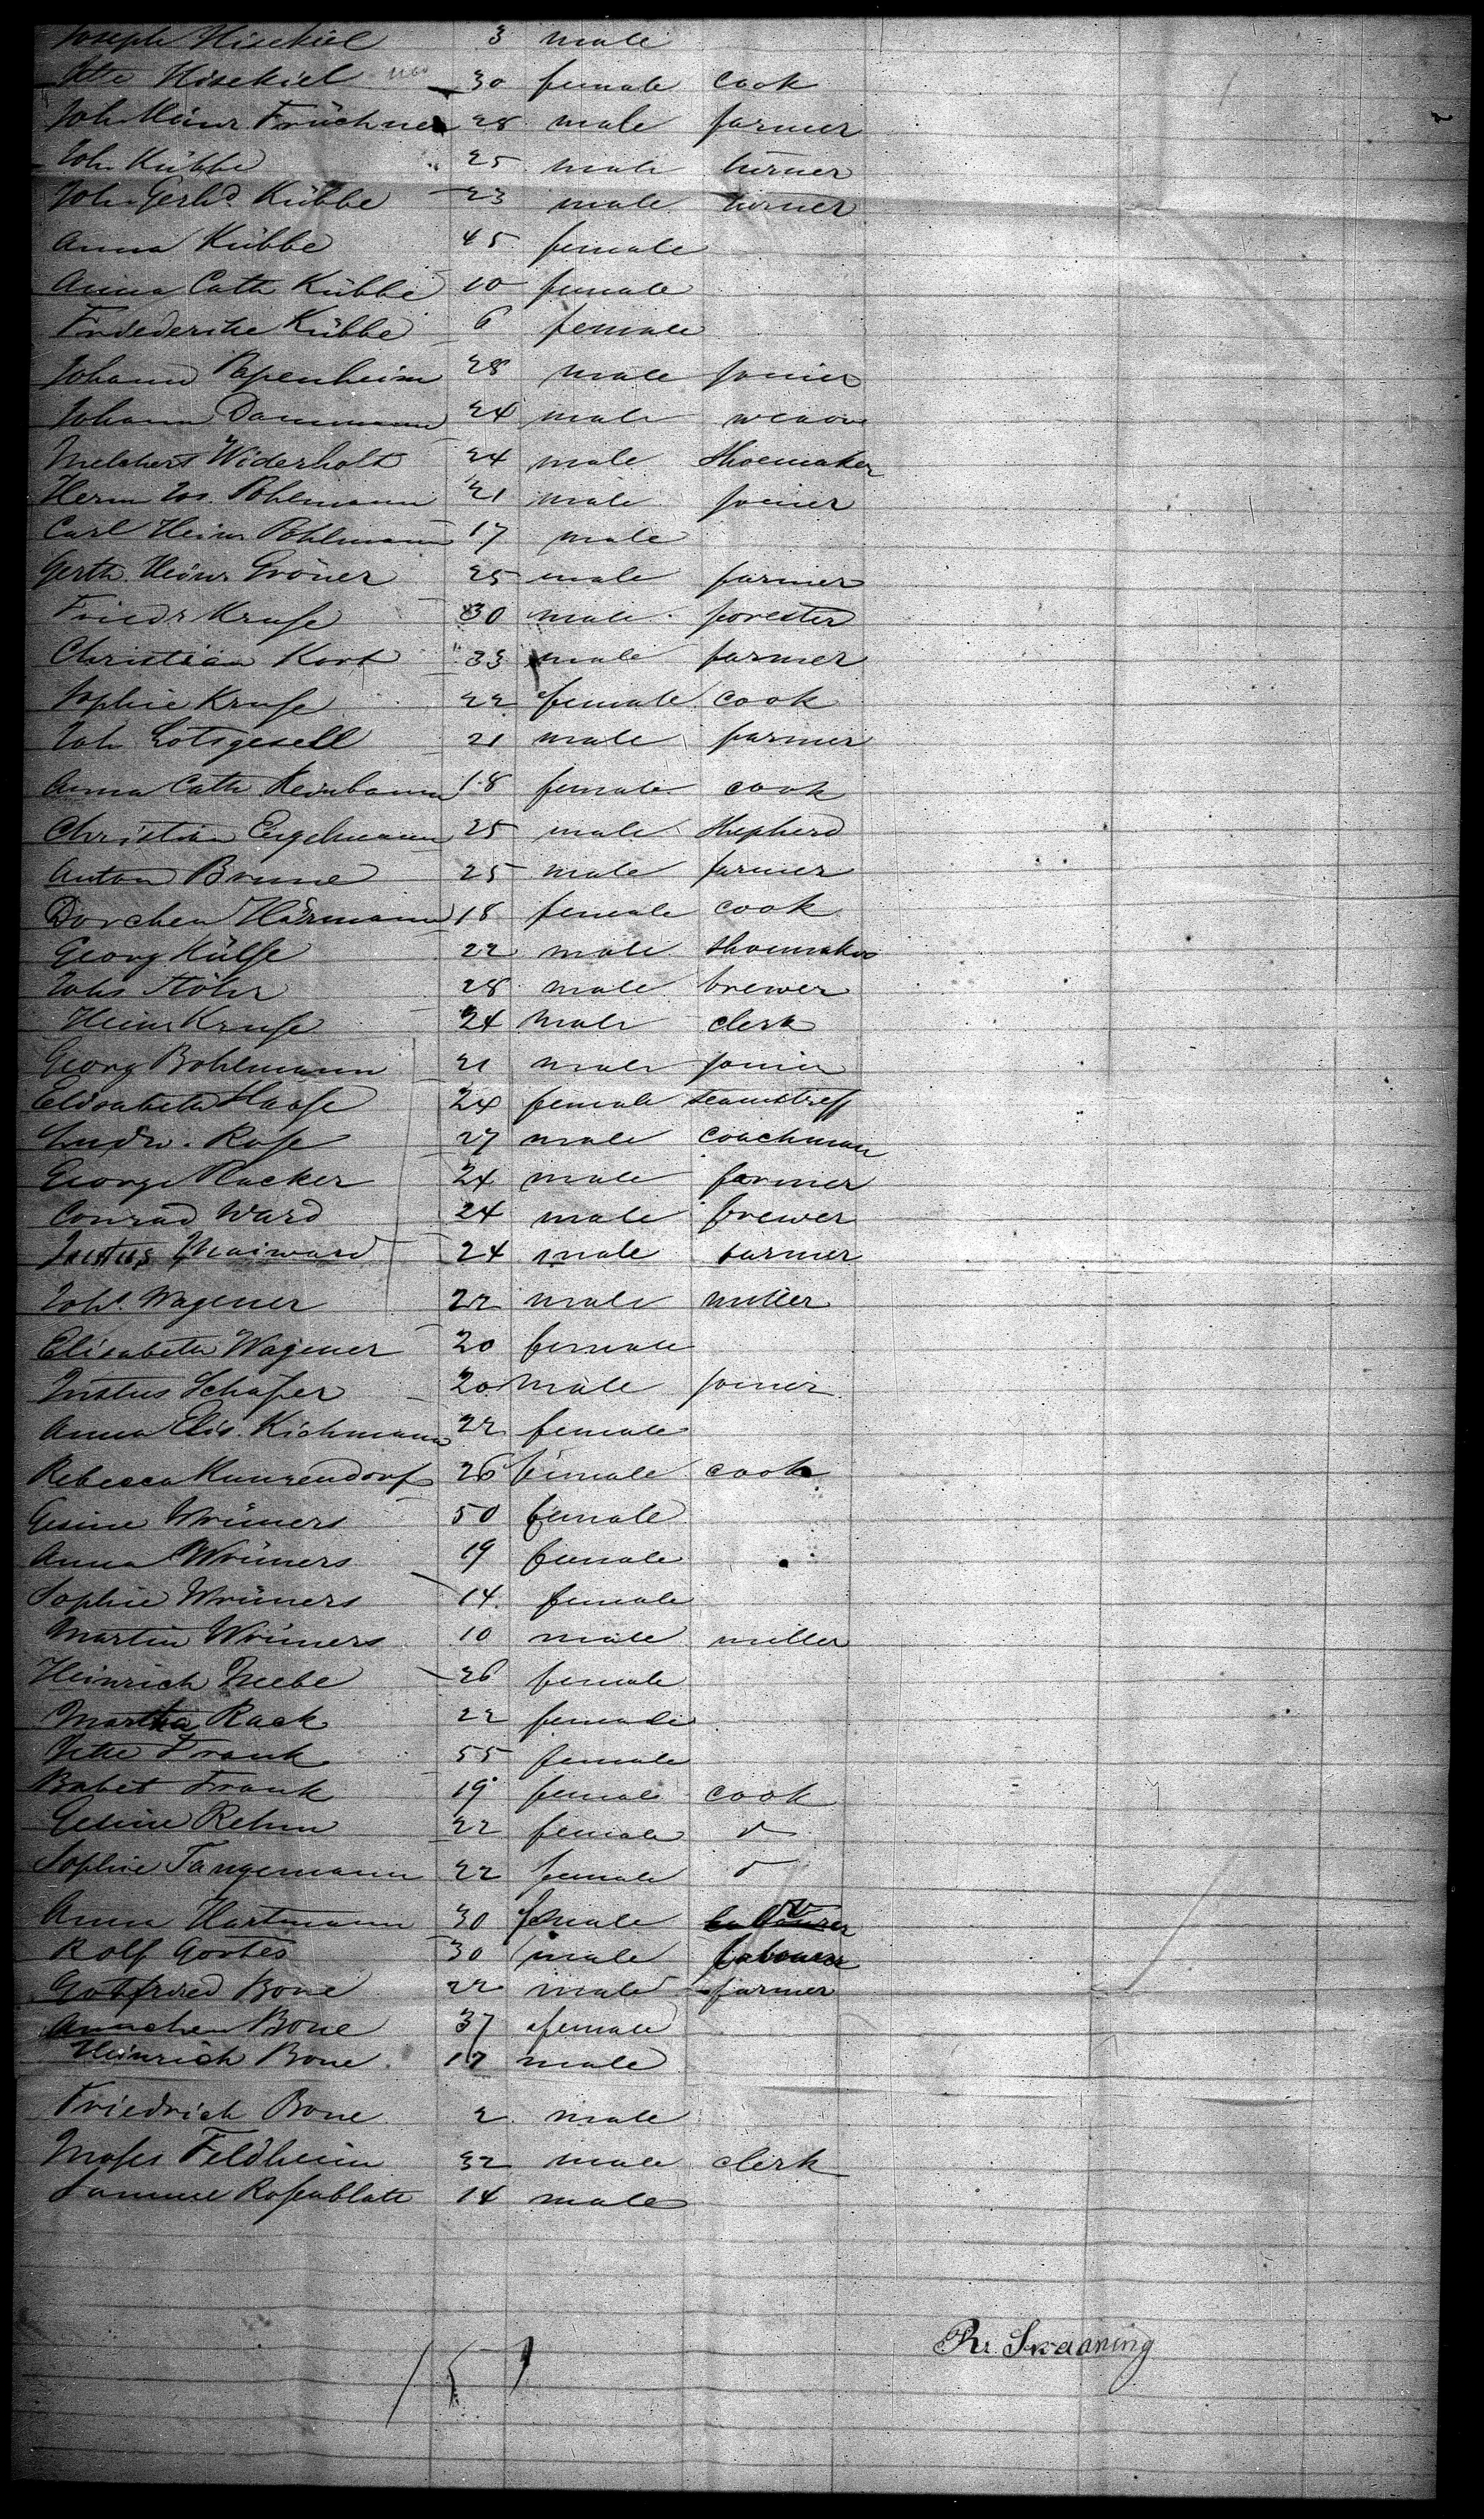 Joseph Hisekiel 3 male
Hisekiel 30 female cook
Joh. Heinr. Früchner 28 male farmer
Joh. Kübbe 25 male turner
Joh. Gerhd. Kübbe 23 male turner
Anna Kübbe 45 female
Anna Cath Kübbe 10 female
Kübbe 6 female
Johann Papenheim 28 male joiner
Johann Dammann 24 male weaver
Melchert Widerholt 24 male shoemaker
Herm Jos. Pohlmann 21 male joiner
Carl Heinr Pohlmann 17 male
Gerth. Heinr Gröner 25 male farmer
Friedr Kruse 30 male forester
Christian Kort 33 male farmer
Sophie Kruse 22 female cook
Joh Lotsgesell 21 male farmer
Anna Cath 18 female cook
Christian Engelmann 25 male shepherd
Anton Brune 25 male farmer
Dorchen Härmann 18 female cook
Georg Hülse 22 male shoemaker
Johs Stöhr 28 male brewer
Heinr Kruse 24 male clerk
Georg Bohlmann 21 male joiner
Elisabeth Haase 24 female seamstress
Ludw. Rose 27 male coachman
George Hacker 24 male farmer
Conrad Ward 24 male brewer
Justus Maiward 24 male farmer
Johs. Wagener 22 male miller
Elisabeth Wagener 20 female
Justus Schäfer 20 male joiner
Anna Elis. Kichmann 22 female
Rebecca Kunzendorf 26 female cook
Gesine Wrüners 50 female
Anna Wrüners 19 female
Sophie Wrüners 14 female
Martin Wrüners 10 male miller
Heinrich Meebe 26 female
Martha Rack 22 female
Jette Frank 55 female
Babet Frank 19 female cook
Gesine Rehm 22 female
Sophie Tangemann 22 female
Anna Hartmann 30 female
Rolf Gootes 30 male labourer
Gottfried Bone 22 male farmer
Annchen Bone 37 female
Heinrich Bone 17 male
Friedrich Bone 2 male
Moses Feldheim 32 male clerk
Samuel Rosenblatt 14 male
Pr. Skaaning
151